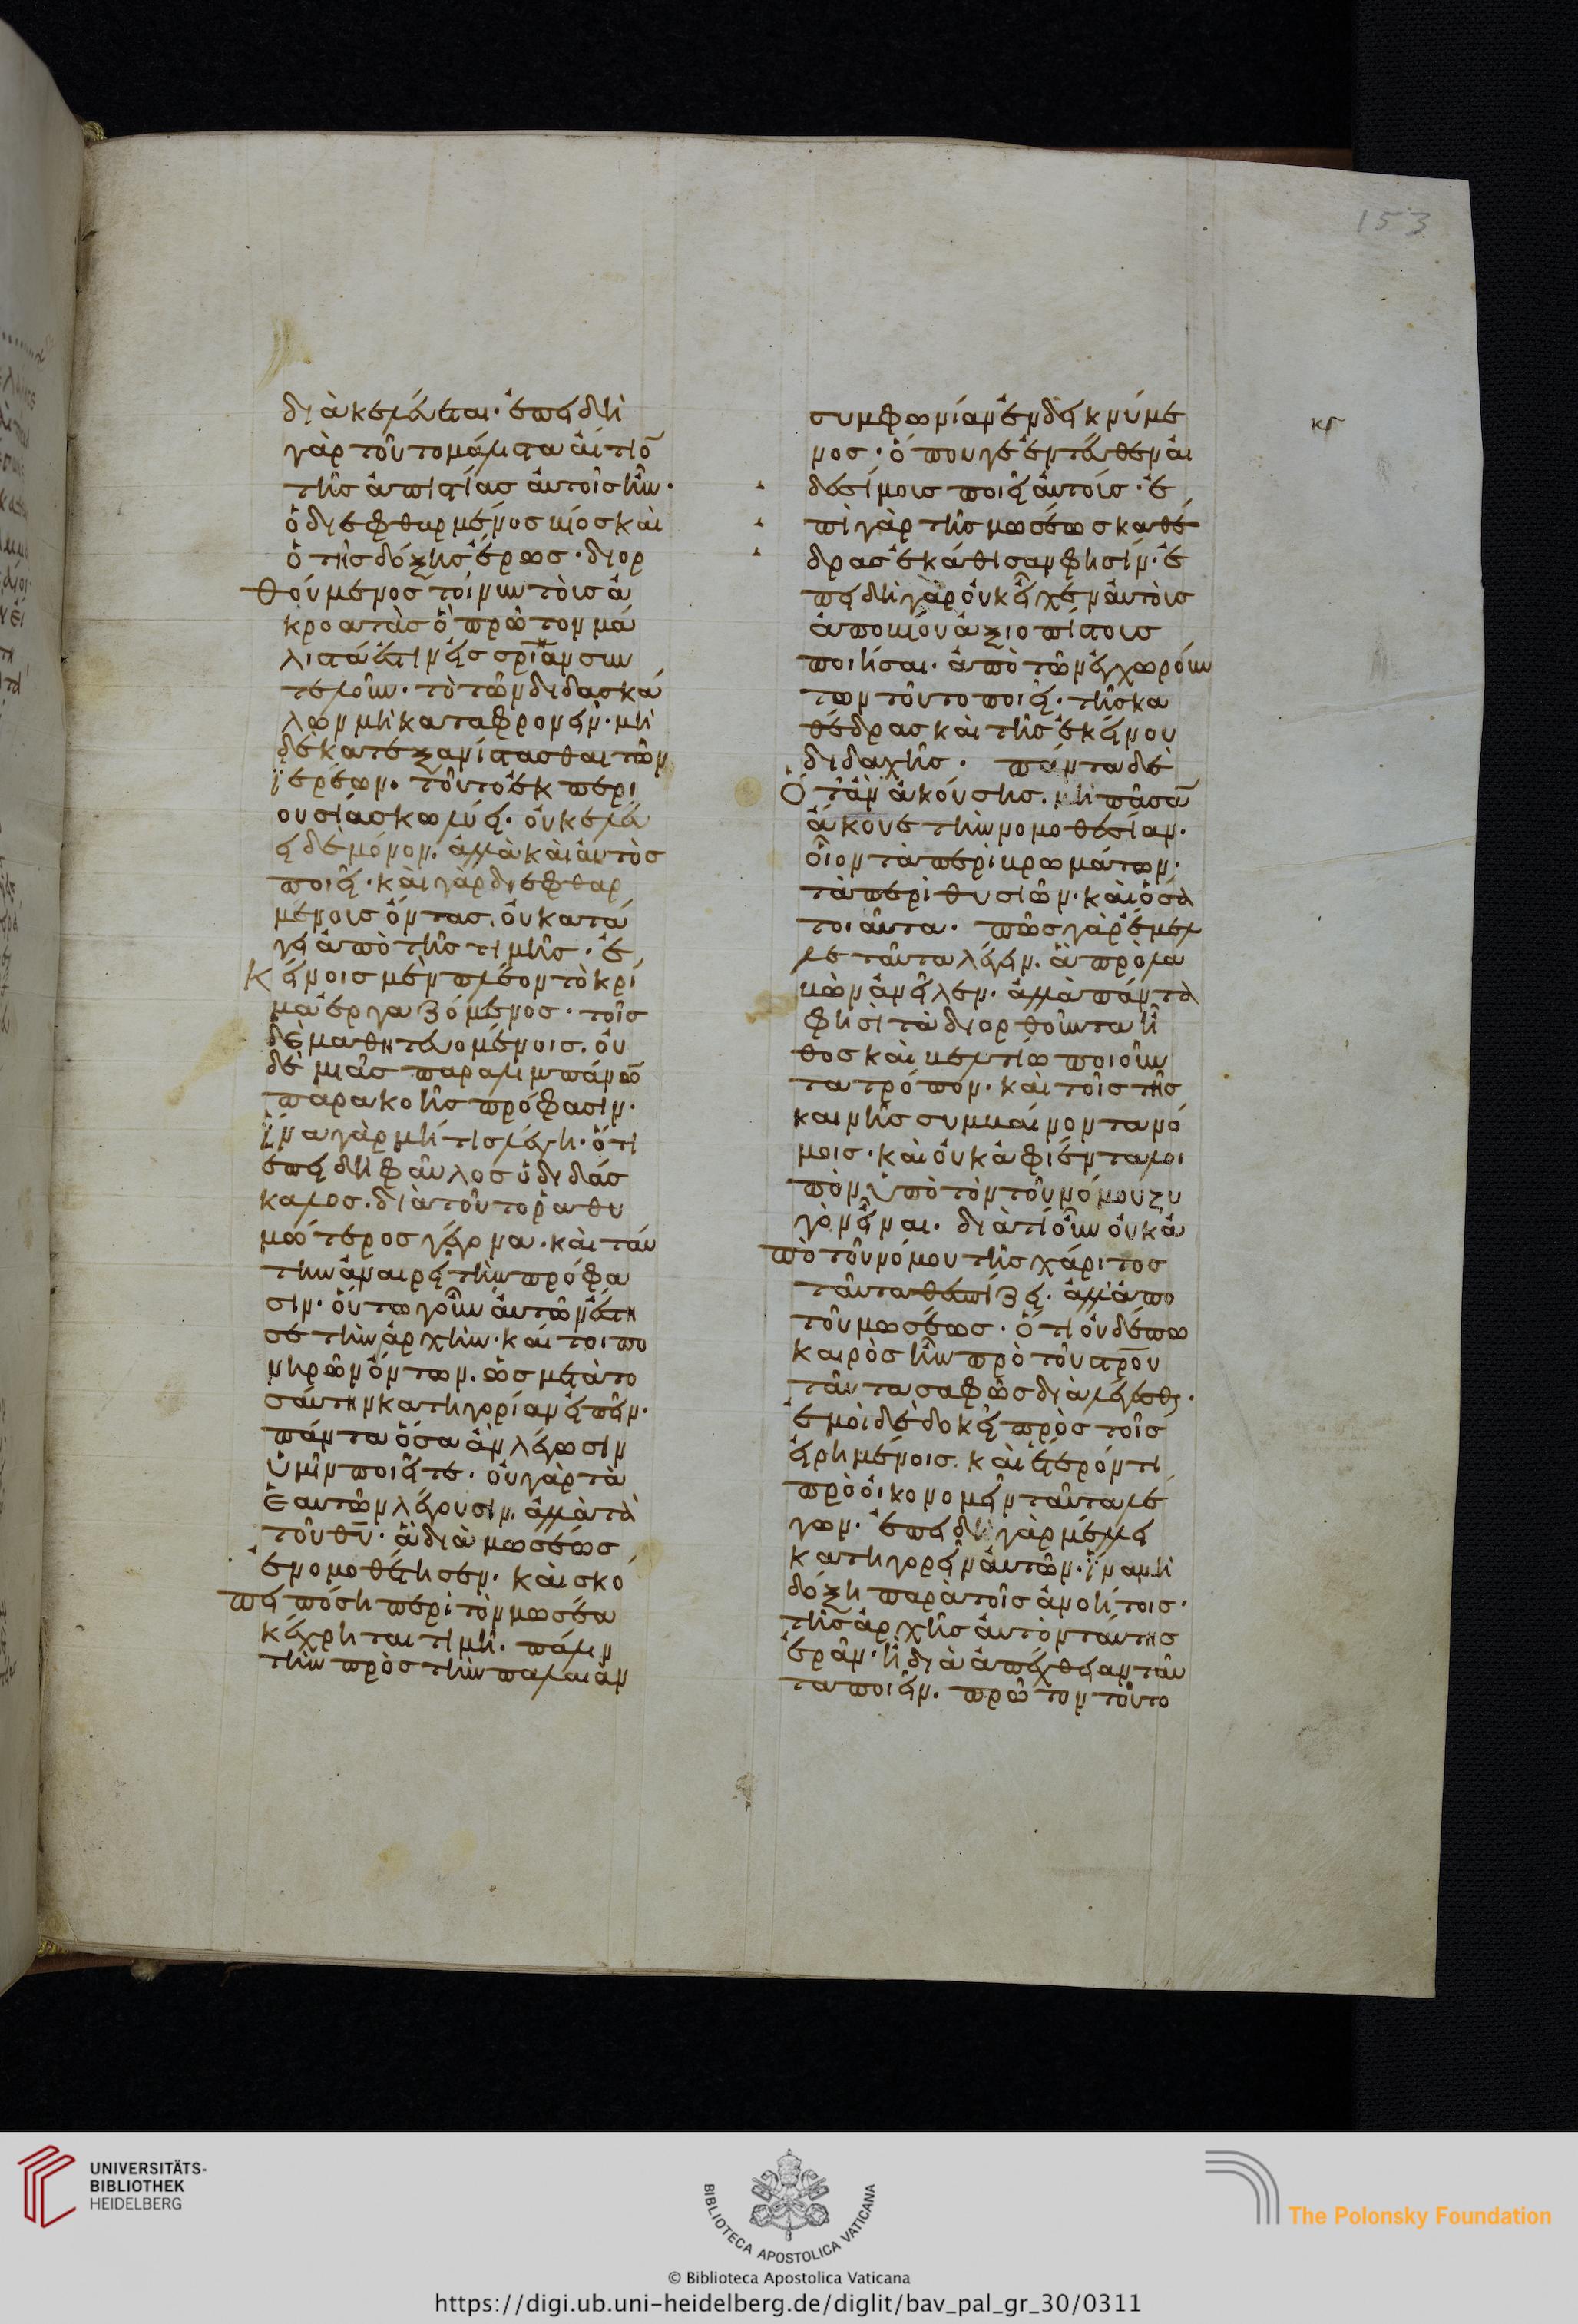 διακελεύεται· ἐπειδὴ
γὰρ τοῦτο μάλιστα αἴτιο̄
τῆς ἀπιστίας αὐτοῖς ἦν·
ὁ διεφθαρμένος βίος καὶ
ὁ τῆς δόξης ἔρως· διορ
θούμενος τοίνυν τοὺς ἀ
κροατὰς ὃ πρῶτον μά
λιστά ἐστιν εἰς σρ̅ίαν συν
τελοῦν· τὸ τῶν διδασκά
λων μὴ καταφρονεῖν· μὴ
δὲ κατεξανίστασθαι τῶν
ἱερέων· τοῦτο ἐκ περι
ουσίας κωλύει· οὐ κελεύ
ει δὲ μόνον· ἀλλὰ καὶ αὐτὸς
ποιεῖ· καὶ γὰρ διεφθαρ
μένους ὄντας· οὐ κατά
γει ἀπὸ τῆς τιμῆς· ἐ
κείνοις μὲν πλέον τὸ κρί
μα ἐργαζόμενος· τοῖς
δὲ μαθητευομένοις· οὐ
δὲ μιᾶς παραλιμπάνω̄
παρακοῆς πρόφασιν·
ἵνα γὰρ μή τις λέγη· ὅτι
ἐπειδὴ φαῦλος ὁ διδάσ
καλος· διὰ τοῦτο ῥαθυ
μώτερος γέγονα· καὶ ταύ
την ἀναιρεῖ τὴν πρόφα
σιν· οὕτω γοῦν αὐτῶν ἔστη
σε τὴν ἀρχὴν· καί τοι πο
νηρῶν ὄντων· ὡς μετὰ το
σαύτην κατηγορίαν εἰπεῖν·
πάντα ὅσα ἂν λέγωσιν
ὑμῖν ποιεῖτε· οὐ γὰρ τὰ
ἑαυτῶν λέγουσιν· ἀλλὰ τὰ
τοῦ θῡ· ἃ διὰ μωσέως
ἐνομοθέτησεν· καὶ σκο
πει πόση περὶ τὸν μωσέα
κέχρηται τιμῆ· πάλιν
τὴν πρὸς τὴν παλαιὰν
συμφωνίαν ἐνδεικνύμε
νος· ὅπου γε ἐντεῦθεν αἰ
δεσίμους ποιεῖ αὐτούς· ἐ
πὶ γὰρ τῆς μωσέως καθέ
δρας ἐκάθισαν φησίν· ἐ
πειδὴ γὰρ οὐκ εἶχεν αὐτοὺς
ἀπὸ βίου ἀξιοπίστους
ποιῆσαι· ἀπὸ τῶν ἐγχωρούν
των τοῦτο ποιεῖ· τῆς κα
θέδρας καὶ τῆς ἐκείνου
διδαχῆς· πάντα δὲ
ὅταν ἀκούσης· μὴ πᾶσᾱ
ἄκουε τὴν νομοθεσίαν·
οἷον τὰ περὶ βρωμάτων·
τὰ περὶ θυσιῶν· καὶ ὅσα
τοιαῦτα· πῶς γὰρ ἔμελ
λε ταῦτα λέγειν· ἃ προλα
βὼν ἀνεῖλεν· ἀλλὰ πάντα
φησὶ τὰ διορθοῦντα ἦ
θος καὶ βελτίω ποιοῦν
τα τρόπον· καὶ τοῖς τῆς
καινῆς συμβαίνοντα νό
μοις· καὶ οὐκ ἀφιέντα λοι
πὸν ὑπὸ τὸν τοῦ νόμου ζυ
γὸν εἶναι· διὰ τί οὖν οὐκ ἀ
πὸ τοῦ νόμου τῆς χάριτος
ταῦτα θεσπίζει· ἀλλ' ἀπο
τοῦ μωσέως· ὅτι οὐδέπω
καιρὸς ἦν πρὸ τοῦ στρ̅οῦ
ταῦτα σαφῶς διαλέγεσθαι·
ἐμοὶ δὲ δοκεῖ πρὸς τοῖς
εἰρημένοις· καὶ ἕτερόν τι
προοικονομεῖν ταῦτα λέ
γων· ἐπειδὴ γὰρ μέλλει
κατηγορεῖν αὐτῶν· ἵνα μὴ
δόξη παρὰ τοῖς ἀνοήτοις·
τῆς ἀρχῆς αὐτὸν ταύτης
ἐρᾶν· ἢ διὰ ἀπέχθειαν ταῦ
τα ποιεῖν· πρῶτον τοῦτο
153
UNIVERSITÄTS-
BIBLIOTHEK
HEIDELBERG
BIBLIOTECA APOSTOLICA VATICANA
The Polonsky Foundation
© Biblioteca Apostolica Vaticana
https://digi.ub.uni-heidelberg.de/diglit/bav_pal_gr_30/0311